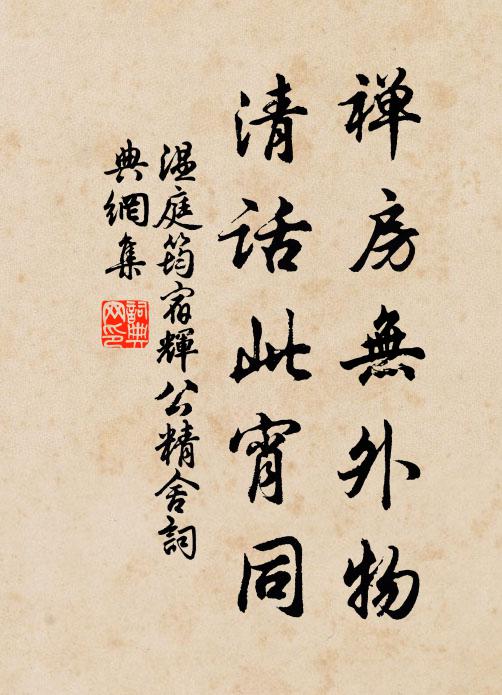 禅房無外物
清話此宵同
温庭筠宿輝公精舍詞
典網集
詞典
网印